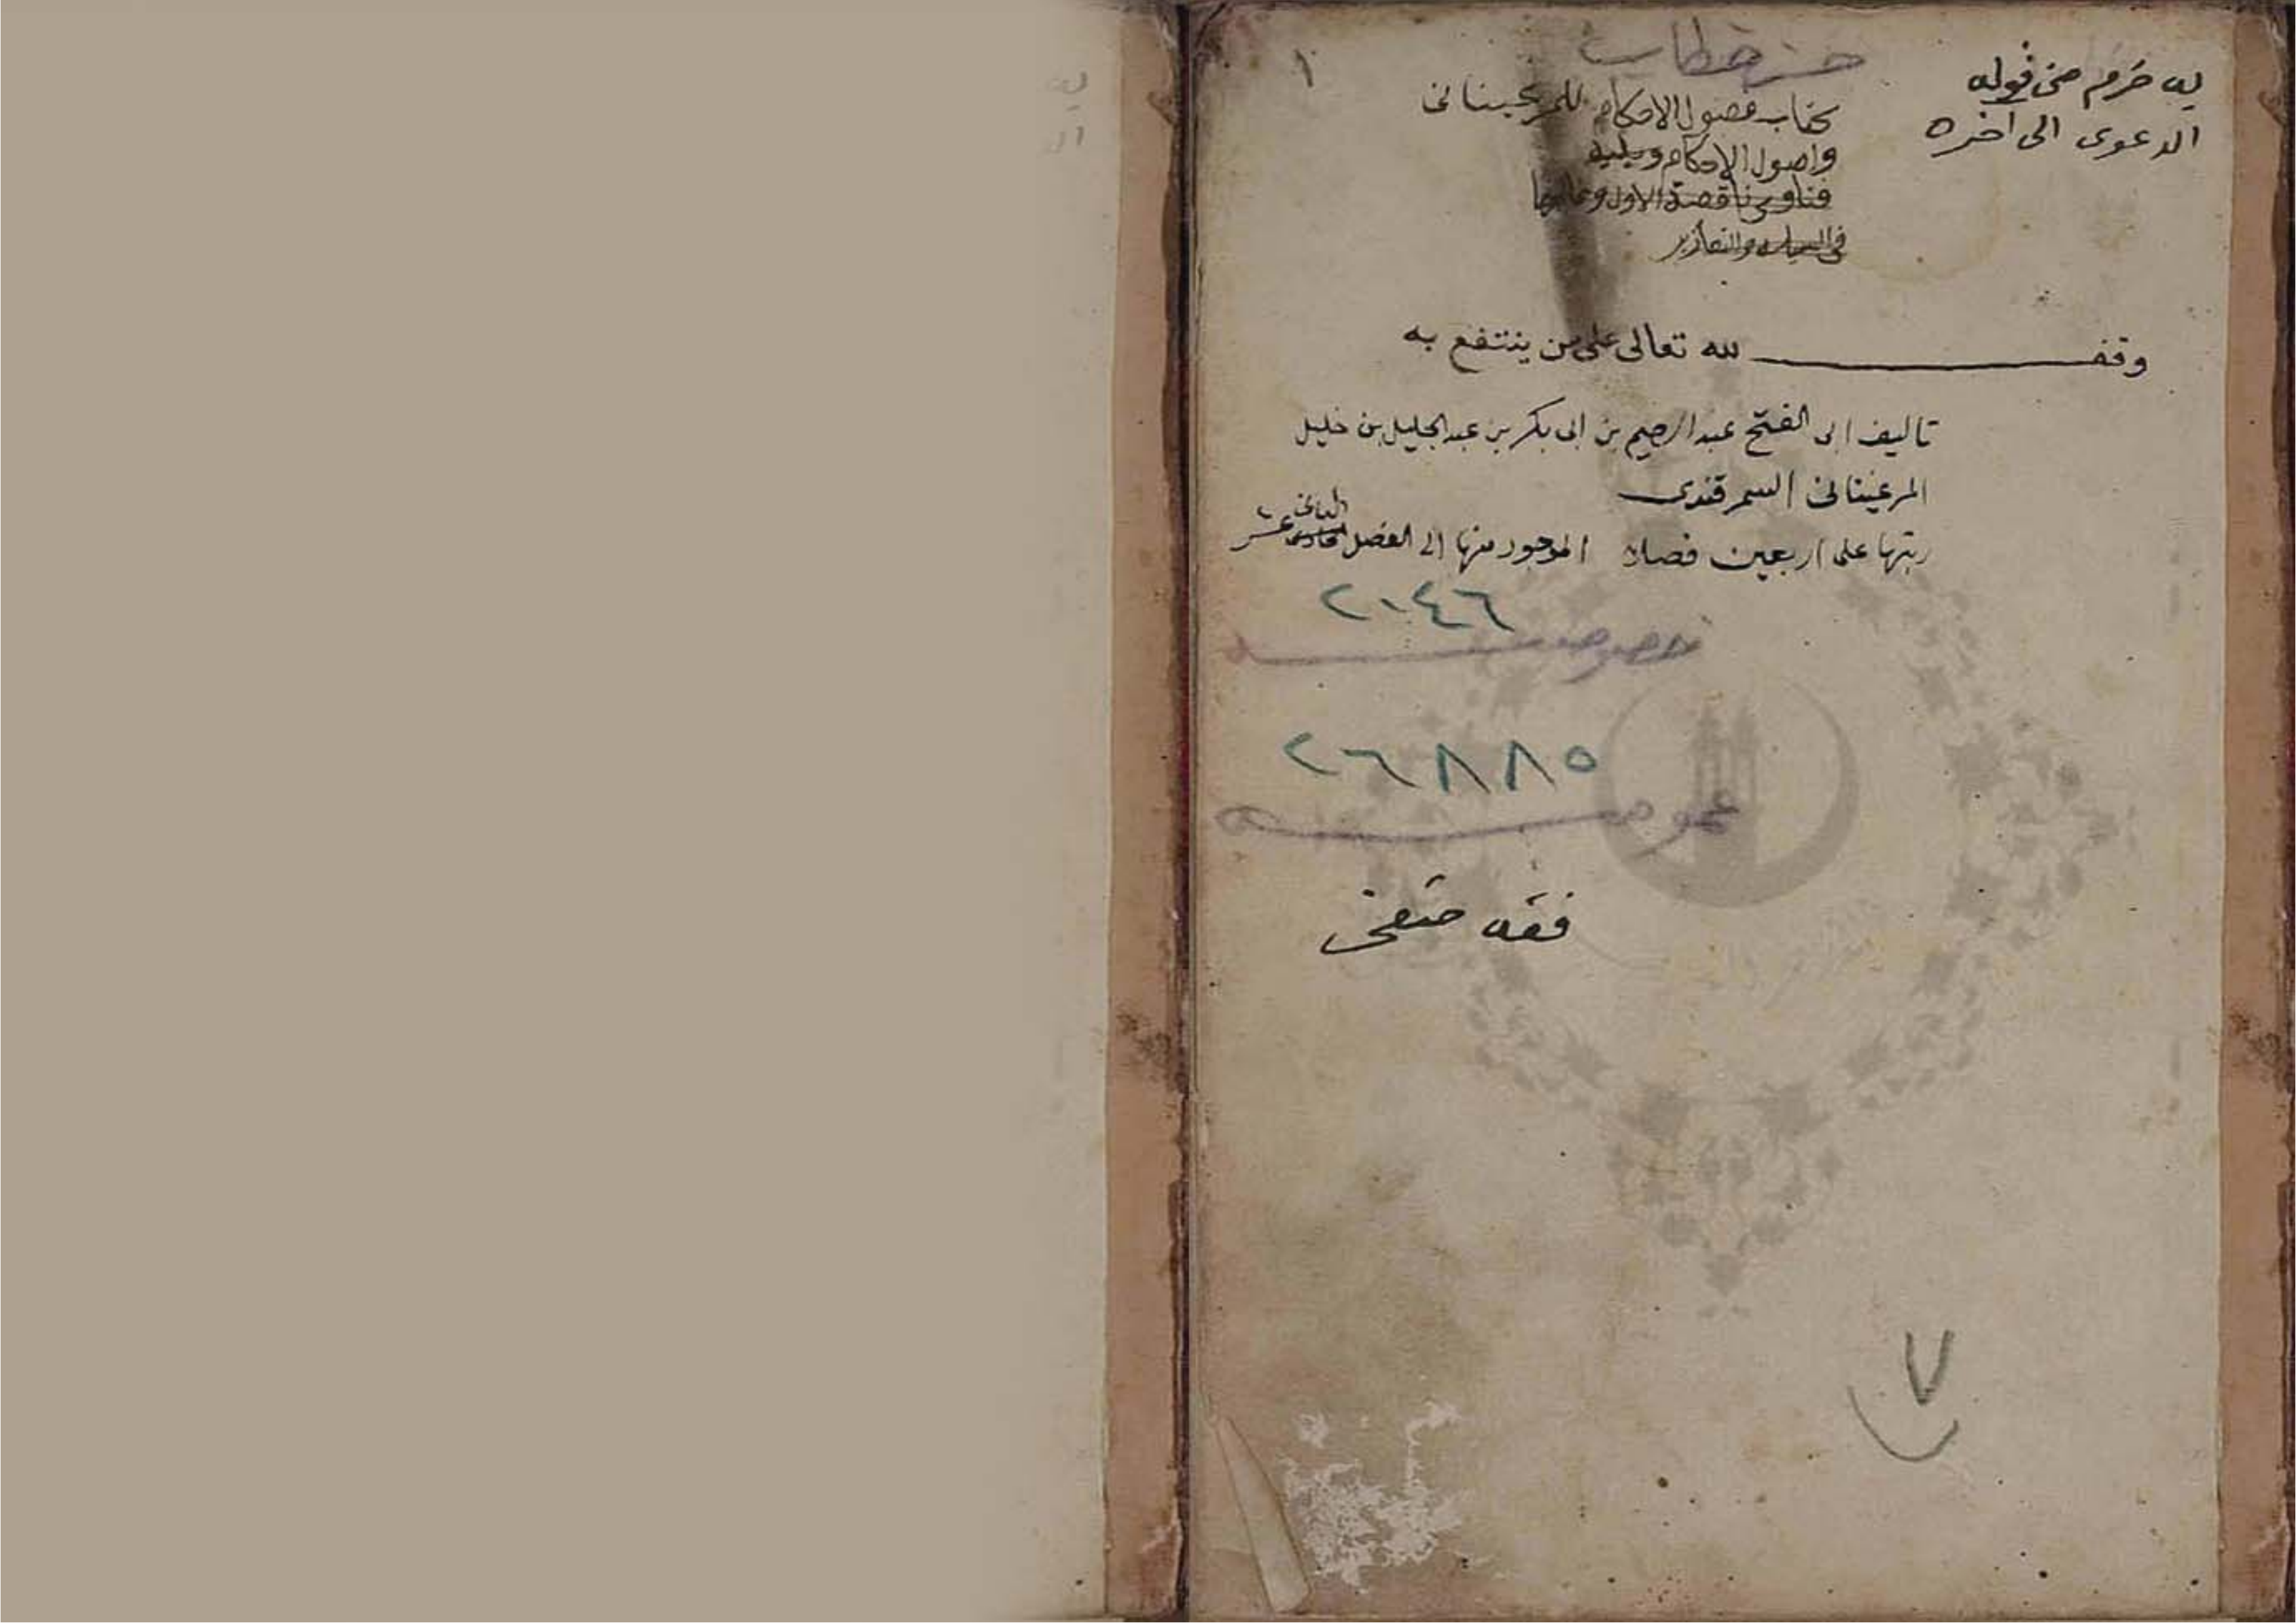 به خرم من قوله
الدعوى الى آخره
١
كتاب فصول الاحكام للمرغيناني
واصول الاحكام ويليه
فتاوى ناقصة الاول
في السياسه والتعازير
وقف لله تعالى على من ينتفع به
تاليف ابى الفتح عبد الرحيم بن ابى بكر بن عبد الجليل بن خليل
المرغينانى السمرقندى
رتبها على اربعين فصلا الموجود منها إلى الفصل الثانى عشر
٢٠٤٦
خصوصيه
٢٦٨٨٥
عموميه
فقه حنفى
٧